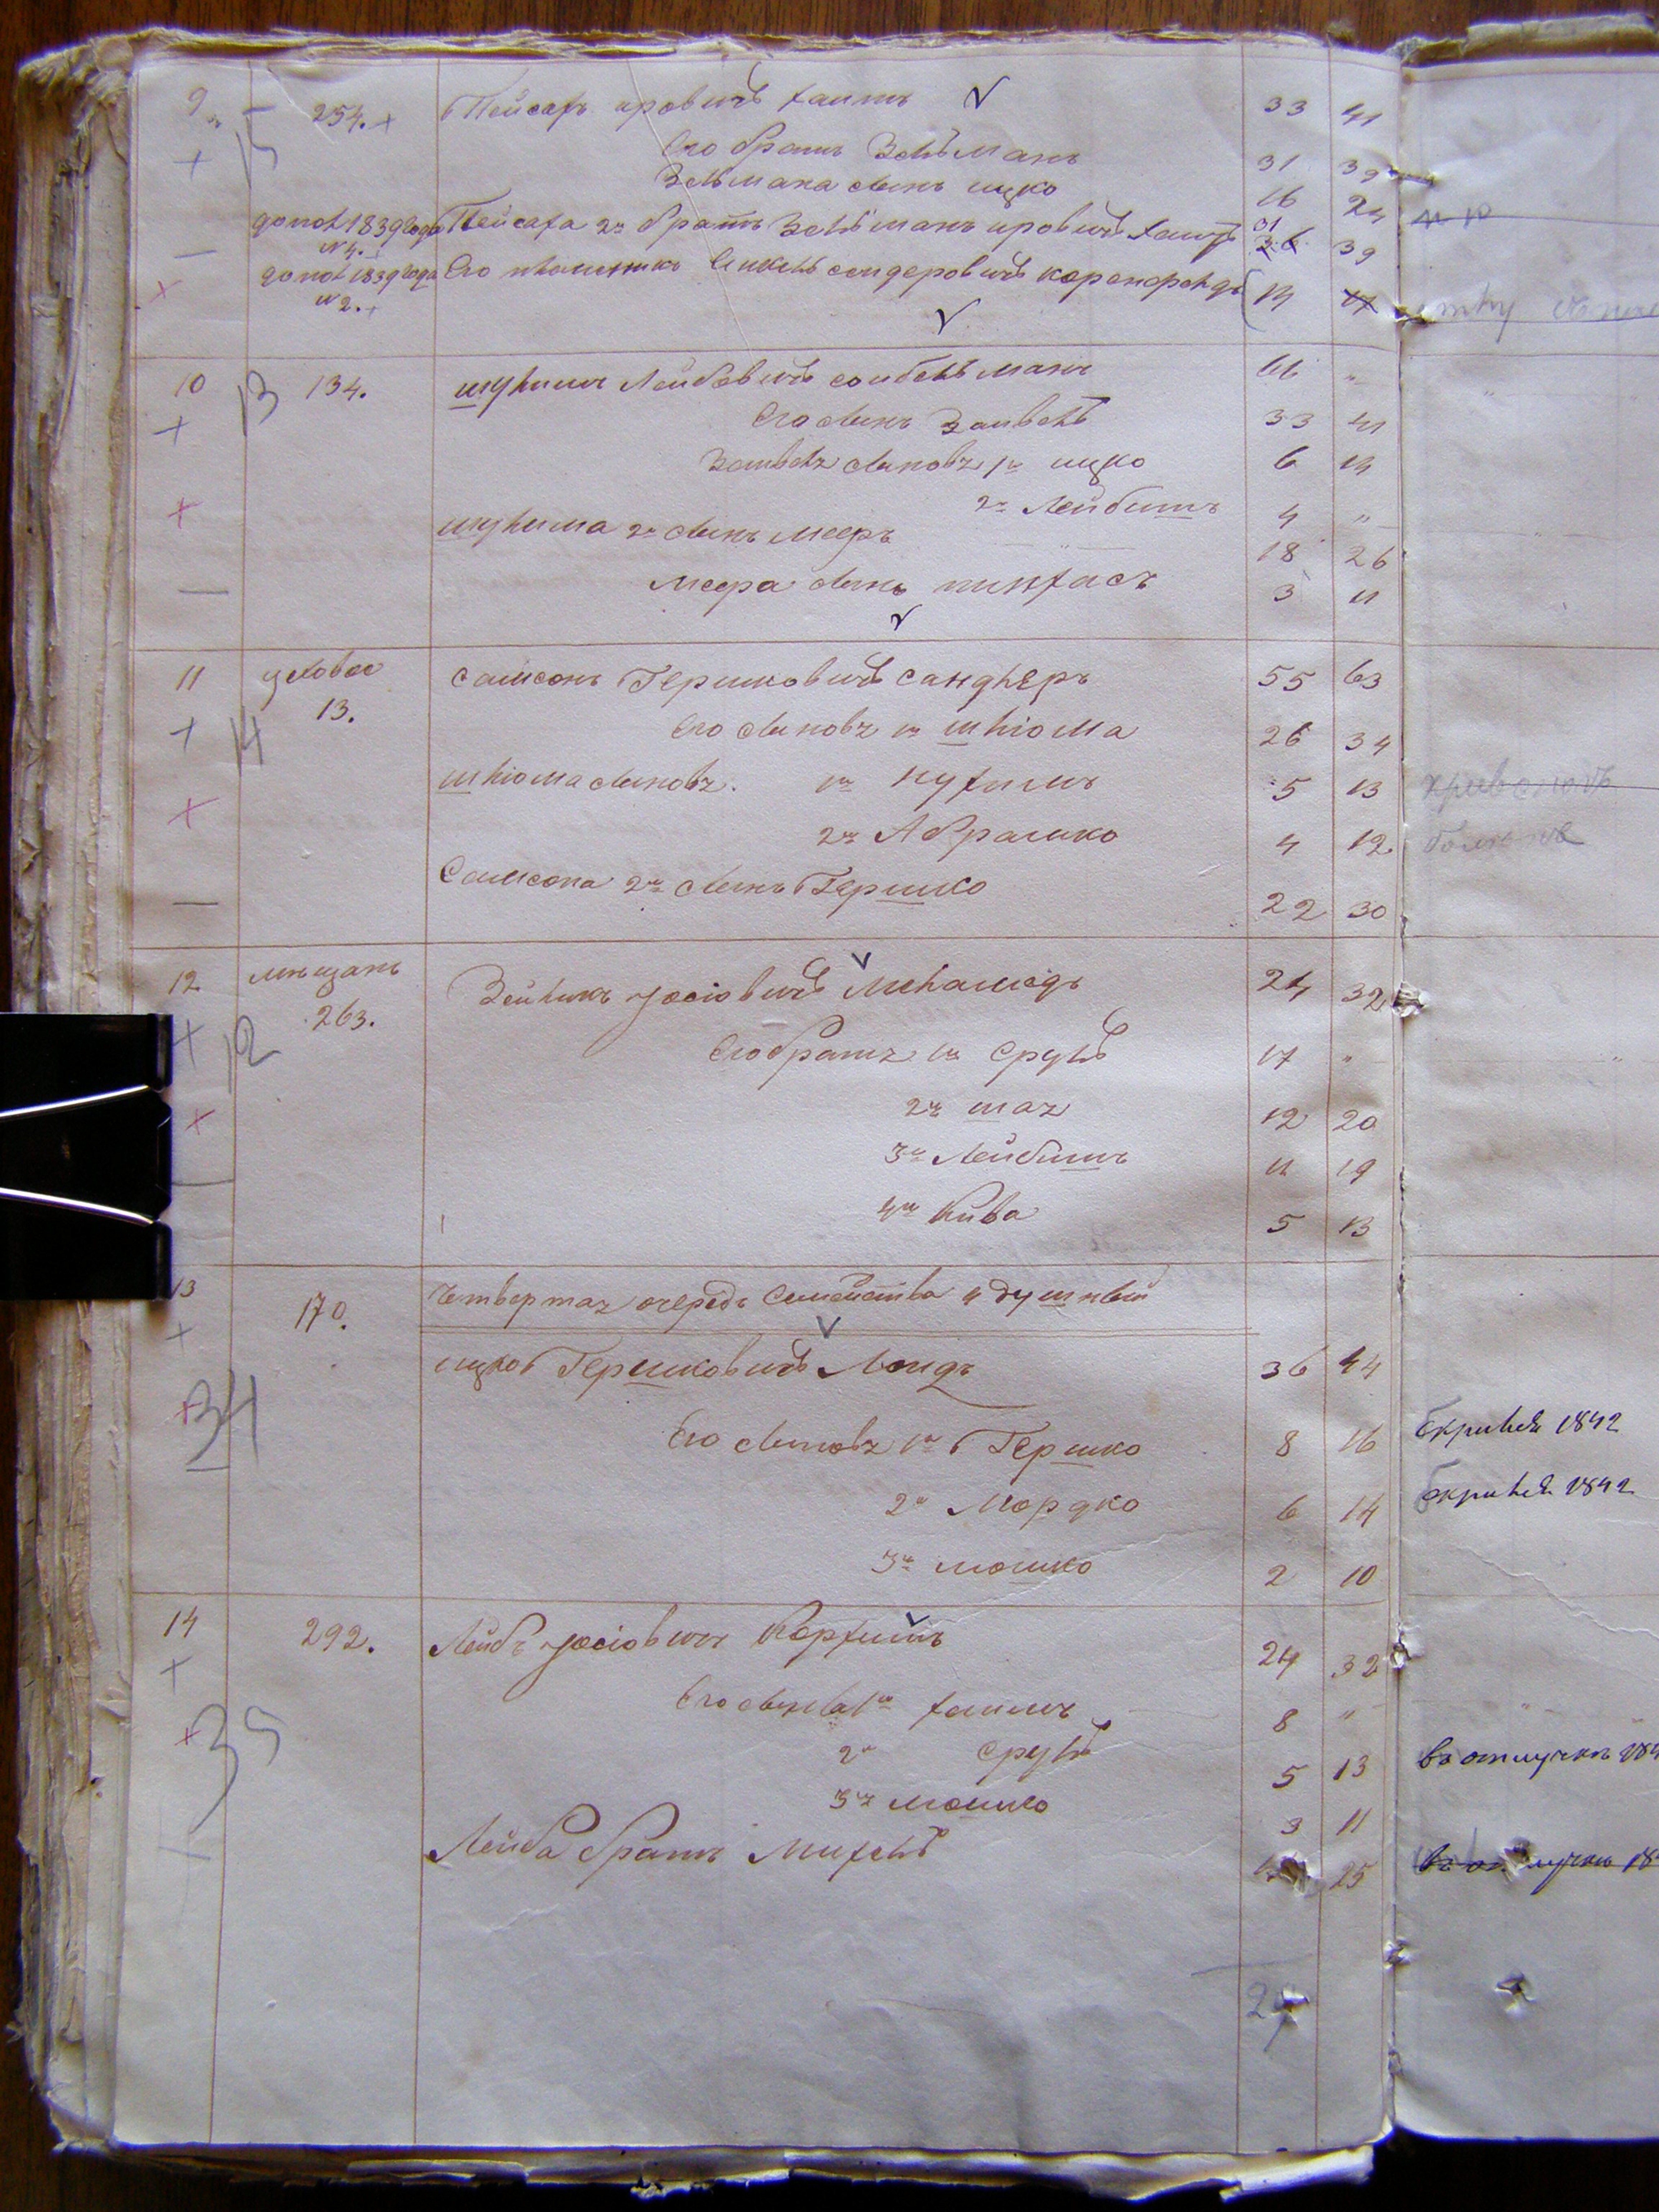 9. 254. Пейсахъ ировичъ хаитъ 33 41
Его братъ Зельманъ 31 39
Зельмана сынъ ицко 16 24
допол 1839 года № 4. Пейсаха 2й братъ Зельманъ ировичъ хаитъ 31 39
допол 1839 года № 2. Его племянникъ сендеровичъ коренфельдъ 14 17
10 134. шулимъ Лейбовичъ сойбельманъ 61 "
Его сынъ Зайвель 33 41
Зайвеля сыновя 1й ицко 6 14
2й Лейбишъ 4 "
шулима 2й сынъ мееръ 18 26
меера сынъ пинхасъ 3 11
11 цеховое 13. самсонъ Гершковичъ сандлеръ 55 63
Его сыновя 1й шліома 26 34
шліома сыновя. 1й нухимъ 5 13
2й Абрамко 4 12
Самсона 2й сынъ Гершко 22 30
12 мещанъ 263. Зейликъ Іосіовичъ меламедъ 24 32
Его братя 1й сруль 17 "
2й шая 12 20
3й Лейбишъ 11 19
4й Кива 5 13
13 170. Четвертая очередь Семейства 4 душный
ицко Гершковичъ Лендъ 36 44
Его сыновя 1й Гершко 8 16
2й Мордко 6 14
3й мошко 2 10
14 292. Лейбъ Іосіовичъ Корхишъ 24 32
Его сыновя 1й хаимъ 8 "
2й сруль 5 13
3й мошко 3 11
Лейба братъ Михель 25
13
14
12
34
35
1842
1842
въ отлучкѣ 184